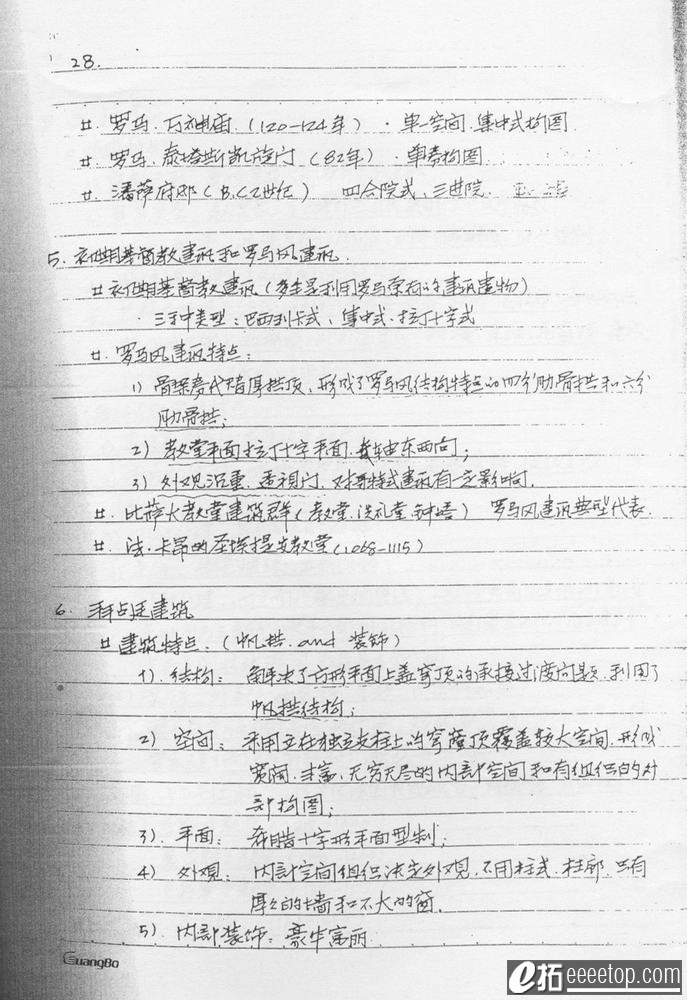 28.
# 罗马.万神庙.(120—124年) · 单一空间.集中式构图
# 罗马.泰塔斯凯旋门(82年) · 单券构图
# 潘萨府邸(B.C 2世纪) 四合院式、三进院.
5. 初期基督教建筑和罗马风建筑.
# 初期基督教建筑(多半是利用罗马原有的建筑遗物)
· 三种类型:巴西利卡式、集中式.拉丁十字式
# 罗马风建筑特点:
1) 骨架券代替厚拱顶、形成了罗马风结构特点的四分肋骨拱和六分
肋骨拱;
2) 教堂平面拉丁十字平面.轴东西向;
3) 外观沉重.透视门.对哥特式建筑有一定影响.
# 比萨大教堂建筑群(教堂.洗礼堂.钟塔) 罗马风建筑典型代表.
# 法.卡昂的圣埃提安教堂(1068-1115)
6. 拜占廷建筑
# 建筑特点.(帆拱.and 装饰)
1). 结构: 解决了方形平面上盖穹顶的承接过渡问题.利用了
帆拱结构;
2) 空间: 采用立在独立支柱上的穹窿顶覆盖较大空间.形成
宽阔.丰富.无穷无尽的内部空间和有组织的外
部构图;
3). 平面: 希腊十字形平面型制;
4) 外观: 内部空间组织决定外观.不用柱式.柱廊.只有
厚厚的墙和不大的窗.
5). 内部装饰:豪华富丽
GuangBo
e拓 eeeetop.com